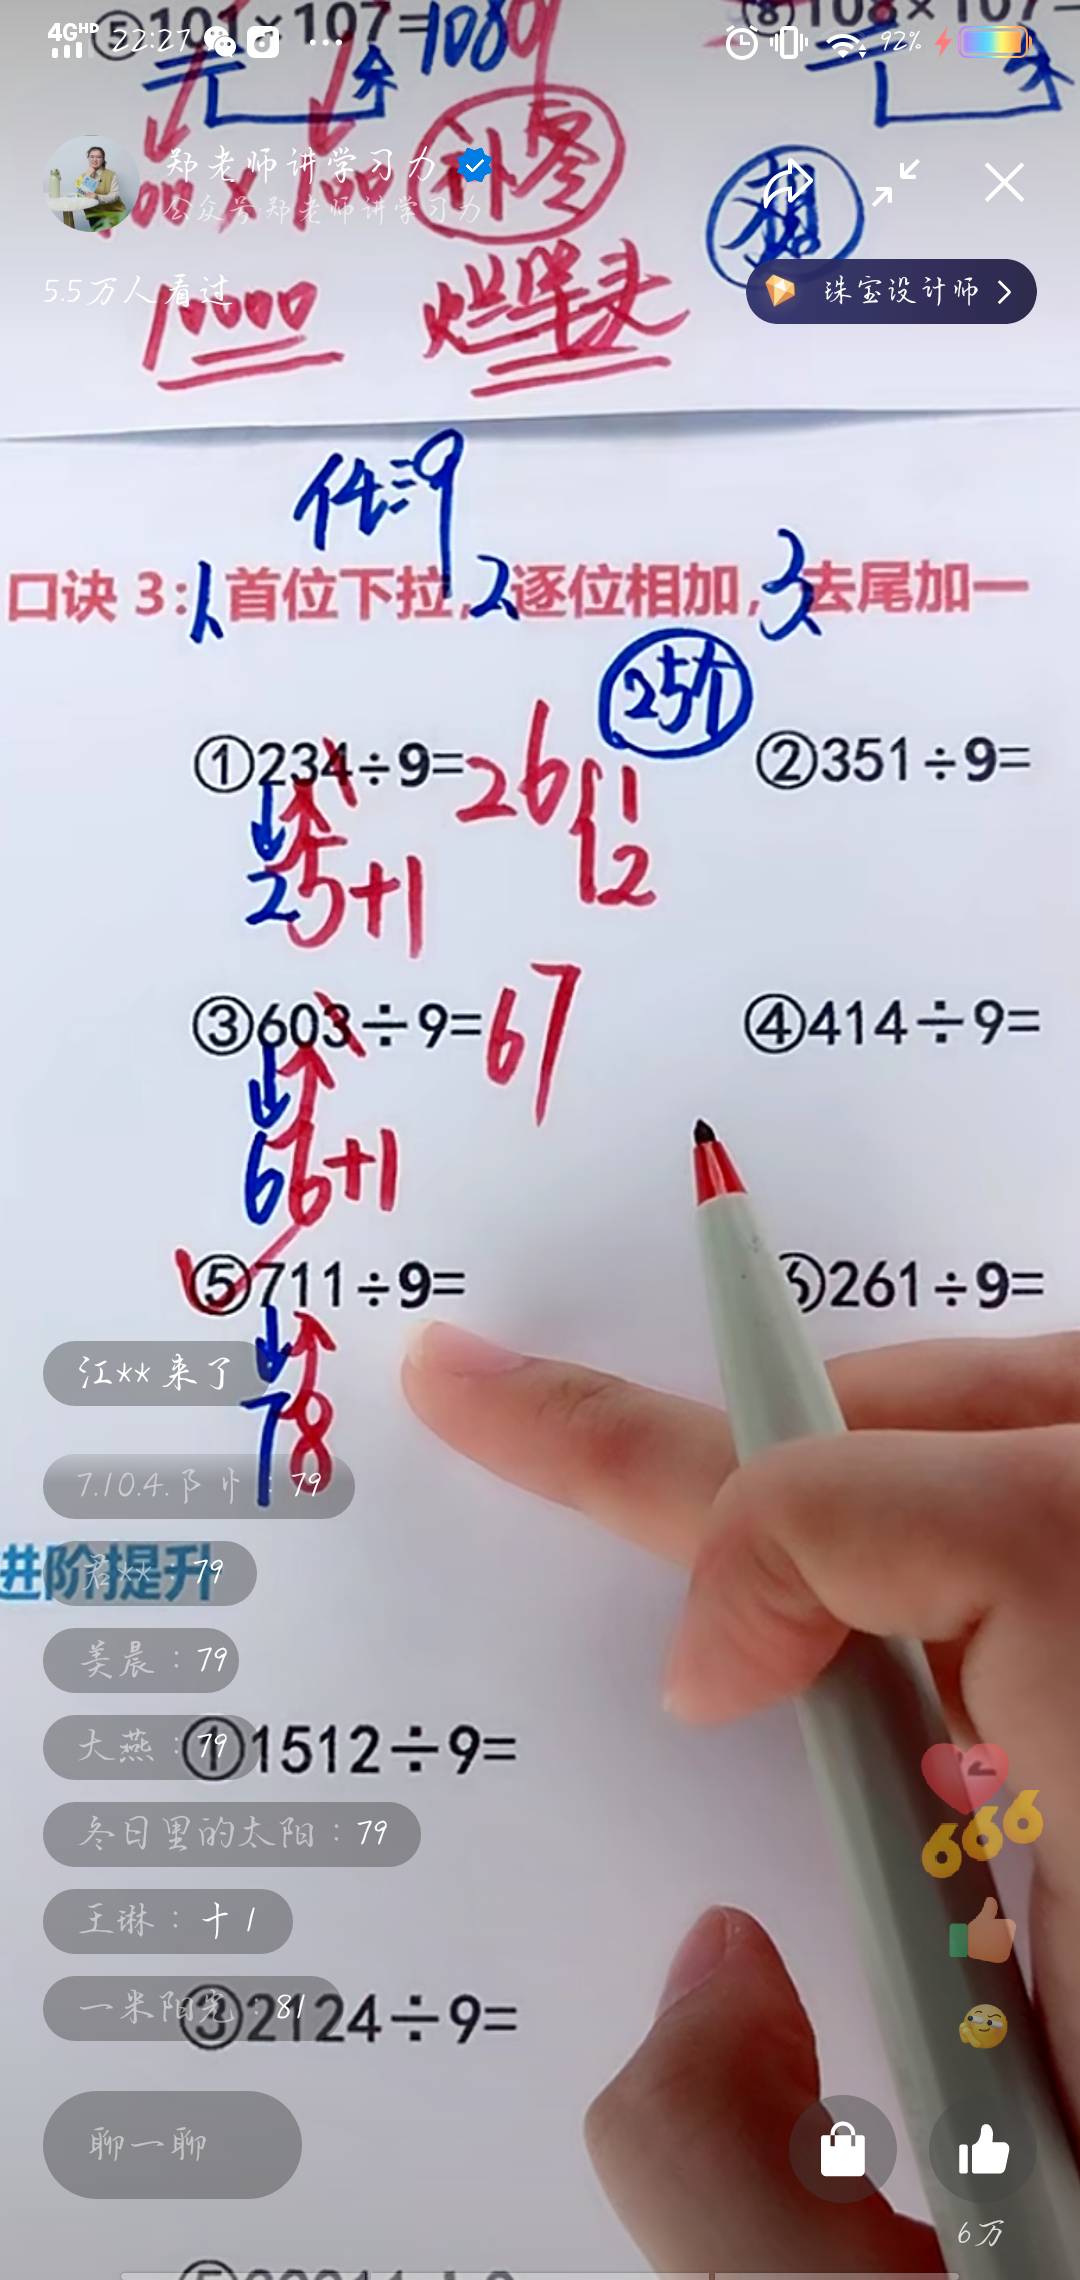 ⑤101×107=1080 ⑧108×107=
4G HD 22:27 ... 92%
郑老师讲学习力
补零
公众号郑老师讲学习力
5.5万人看过
珠宝设计师
10000
1. 2. 3.
口诀 3:首位下拉,逐位相加,去尾加一
25个
①234÷9=26 ②351÷9=
1
2
25+1
③603÷9=67 ④414÷9=
66+1
⑤711÷9= ⑥261÷9=
江** 来了
78
79
进阶提升
君**:79
美晨:79
①1512÷9=
大燕:79
冬日里的太阳:79
王琳:十1
一米阳光:81
③2124÷9=
666
聊一聊
6万